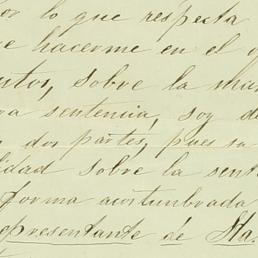 por lo que respecta
hacerme en el
sobre la
sentencia, soy de
dos partes, pues su
lidad sobre la sent
forma acostumbrada
epresentante de Ha